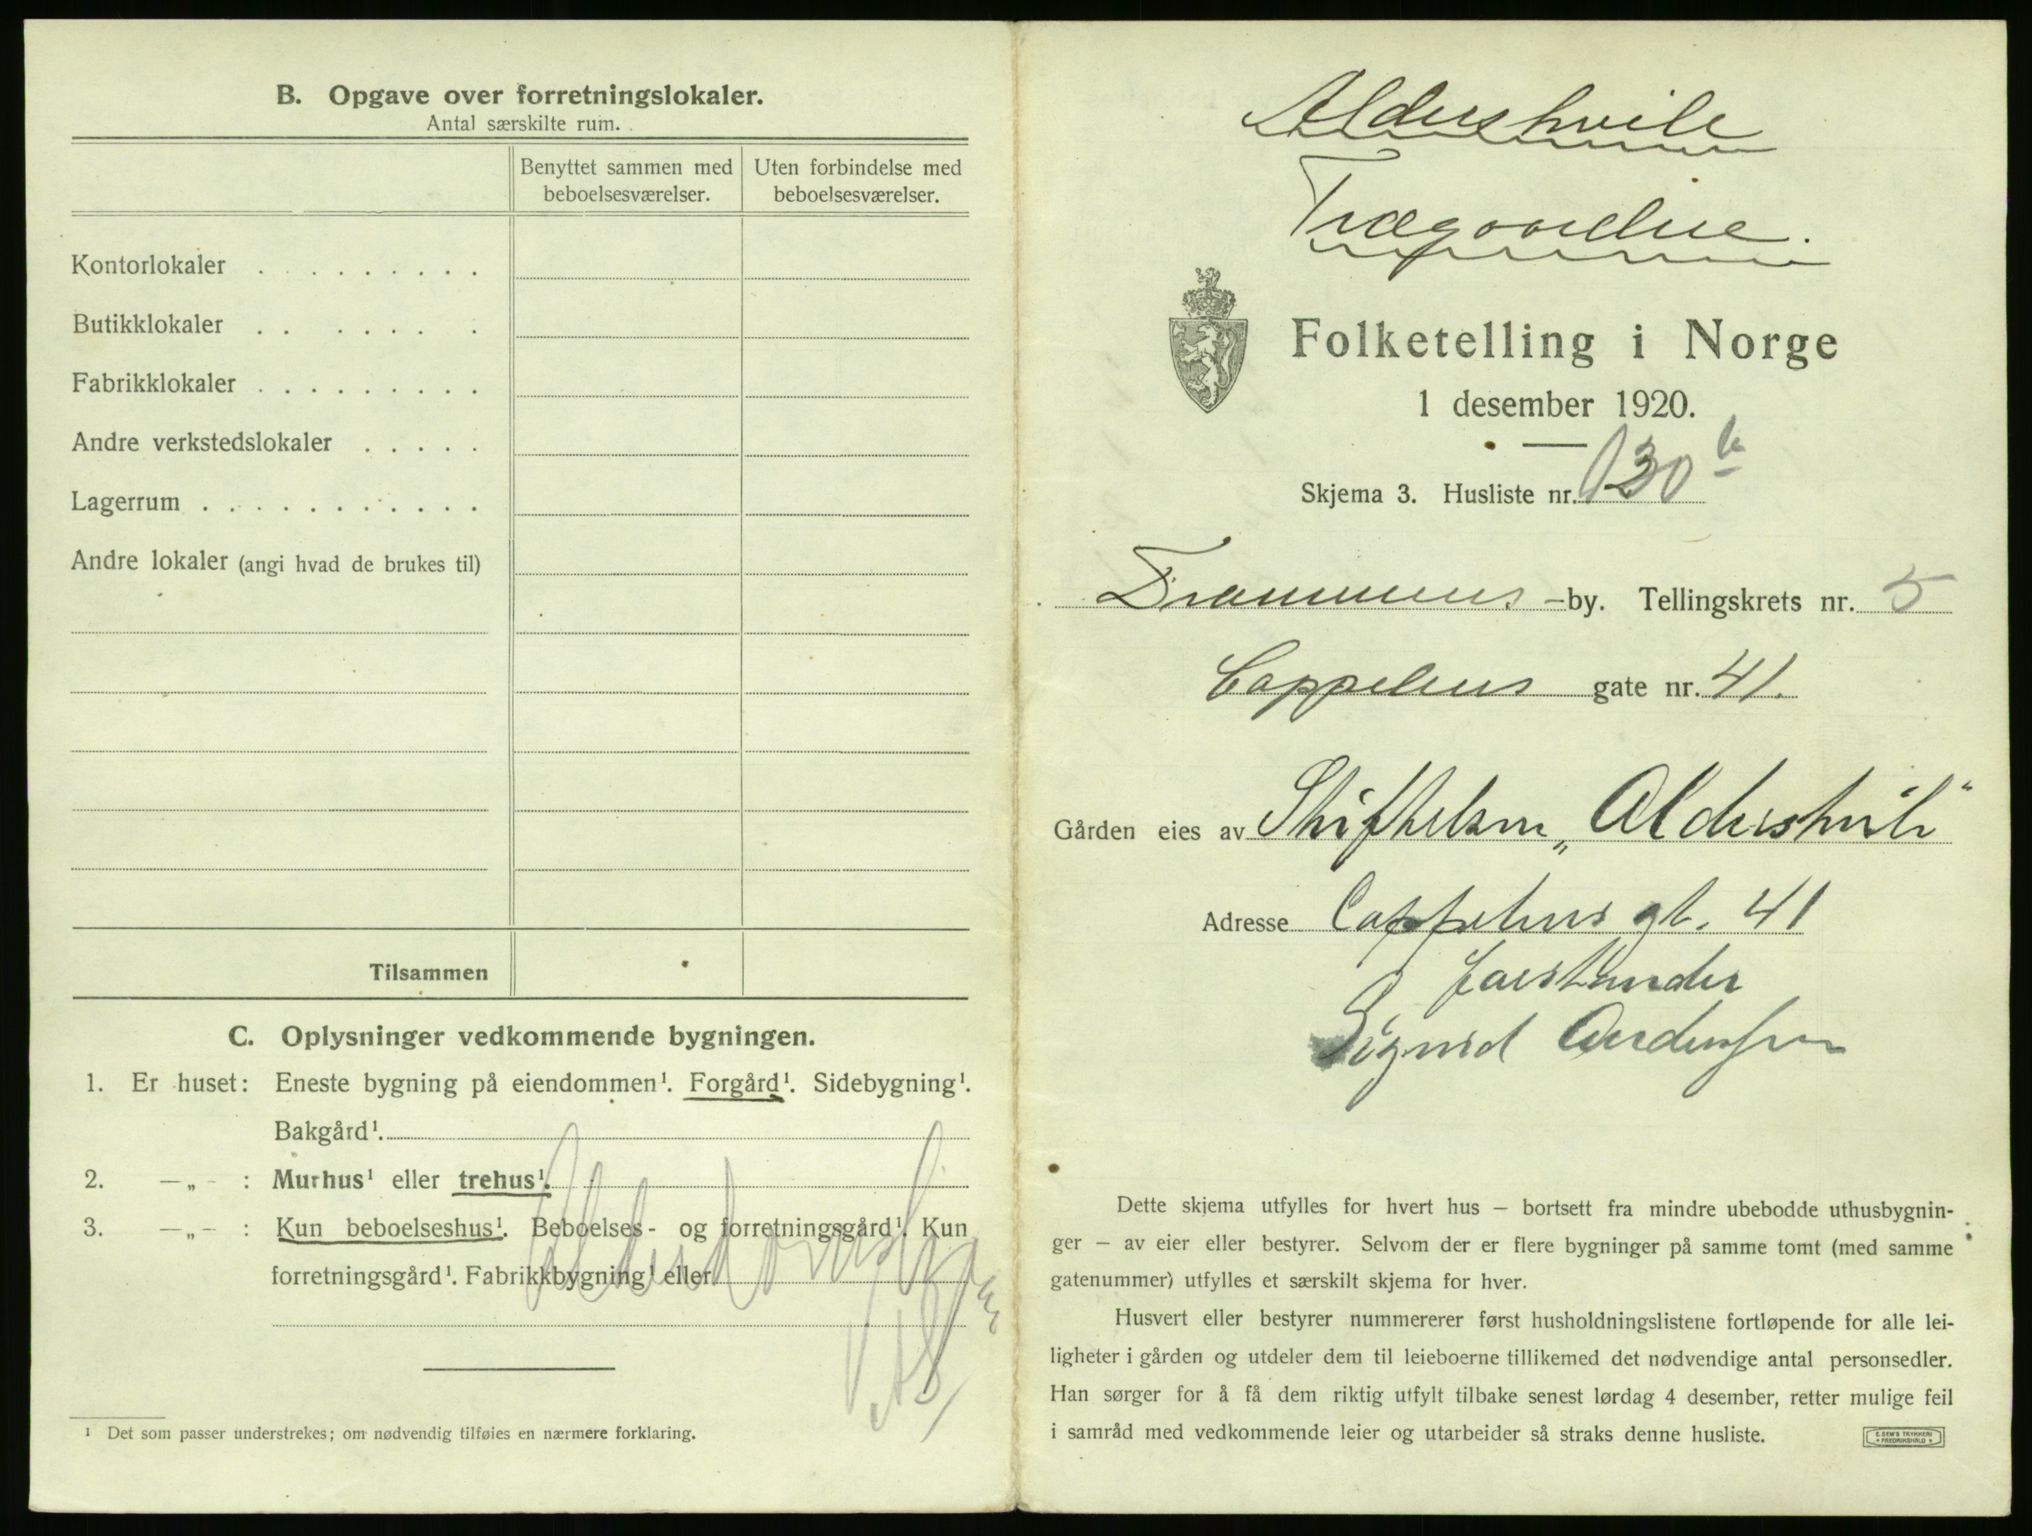 B. Opgave over forretningslokaler.
Antal særskilte rum.
Benyttet sammen med beboelsesværelser.
Uten forbindelse med beboelsesværelser.
Kontorlokaler . . . . . . . . .
Butikklokaler . . . . . . .
Fabrikklokaler . . . . . . . . .
Andre verkstedslokaler . . . . .
Lagerrum . . . . . . . . . . .
Andre lokaler (angi hvad de brukes til)
Tilsammen
C. Oplysninger vedkommende bygningen.
1. Er huset: Eneste bygning på eiendommen¹. Forgård¹. Sidebygning¹.
Bakgård¹.
2. —„— : Murhus¹ eller trehus¹.
3. —„— : Kun beboelseshus¹. Beboelses- og forretningsgård¹. Kun
forretningsgård¹. Fabrikkbygning¹ eller
¹ Det som passer understrekes; om nødvendig tilføies en nærmere forklaring.
Aldershvile
Trægaardene.
Folketelling i Norge
1 desember 1920.
Skjema 3. Husliste nr. 130 b
Drammens -by. Tellingskrets nr. 5
Cappelens gate nr. 41.
Gården eies av Stiftelsen „Aldershvile“
Adresse Cappelens gt. 41
Sigrid Andersen
Dette skjema utfylles for hvert hus — bortsett fra mindre ubebodde uthusbygnin-
ger — av eier eller bestyrer. Selvom der er flere bygninger på samme tomt (med samme
gatenummer) utfylles et særskilt skjema for hver.
Husvert eller bestyrer nummererer først husholdningslistene fortløpende for alle lei-
ligheter i gården og utdeler dem til leieboerne tillikemed det nødvendige antal personsedler.
Han sørger for å få dem riktig utfylt tilbake senest lørdag 4 desember, retter mulige feil
i samråd med vedkommende leier og utarbeider så straks denne husliste.
E. SEM'S TRYKKERI
FREDRIKSHALD